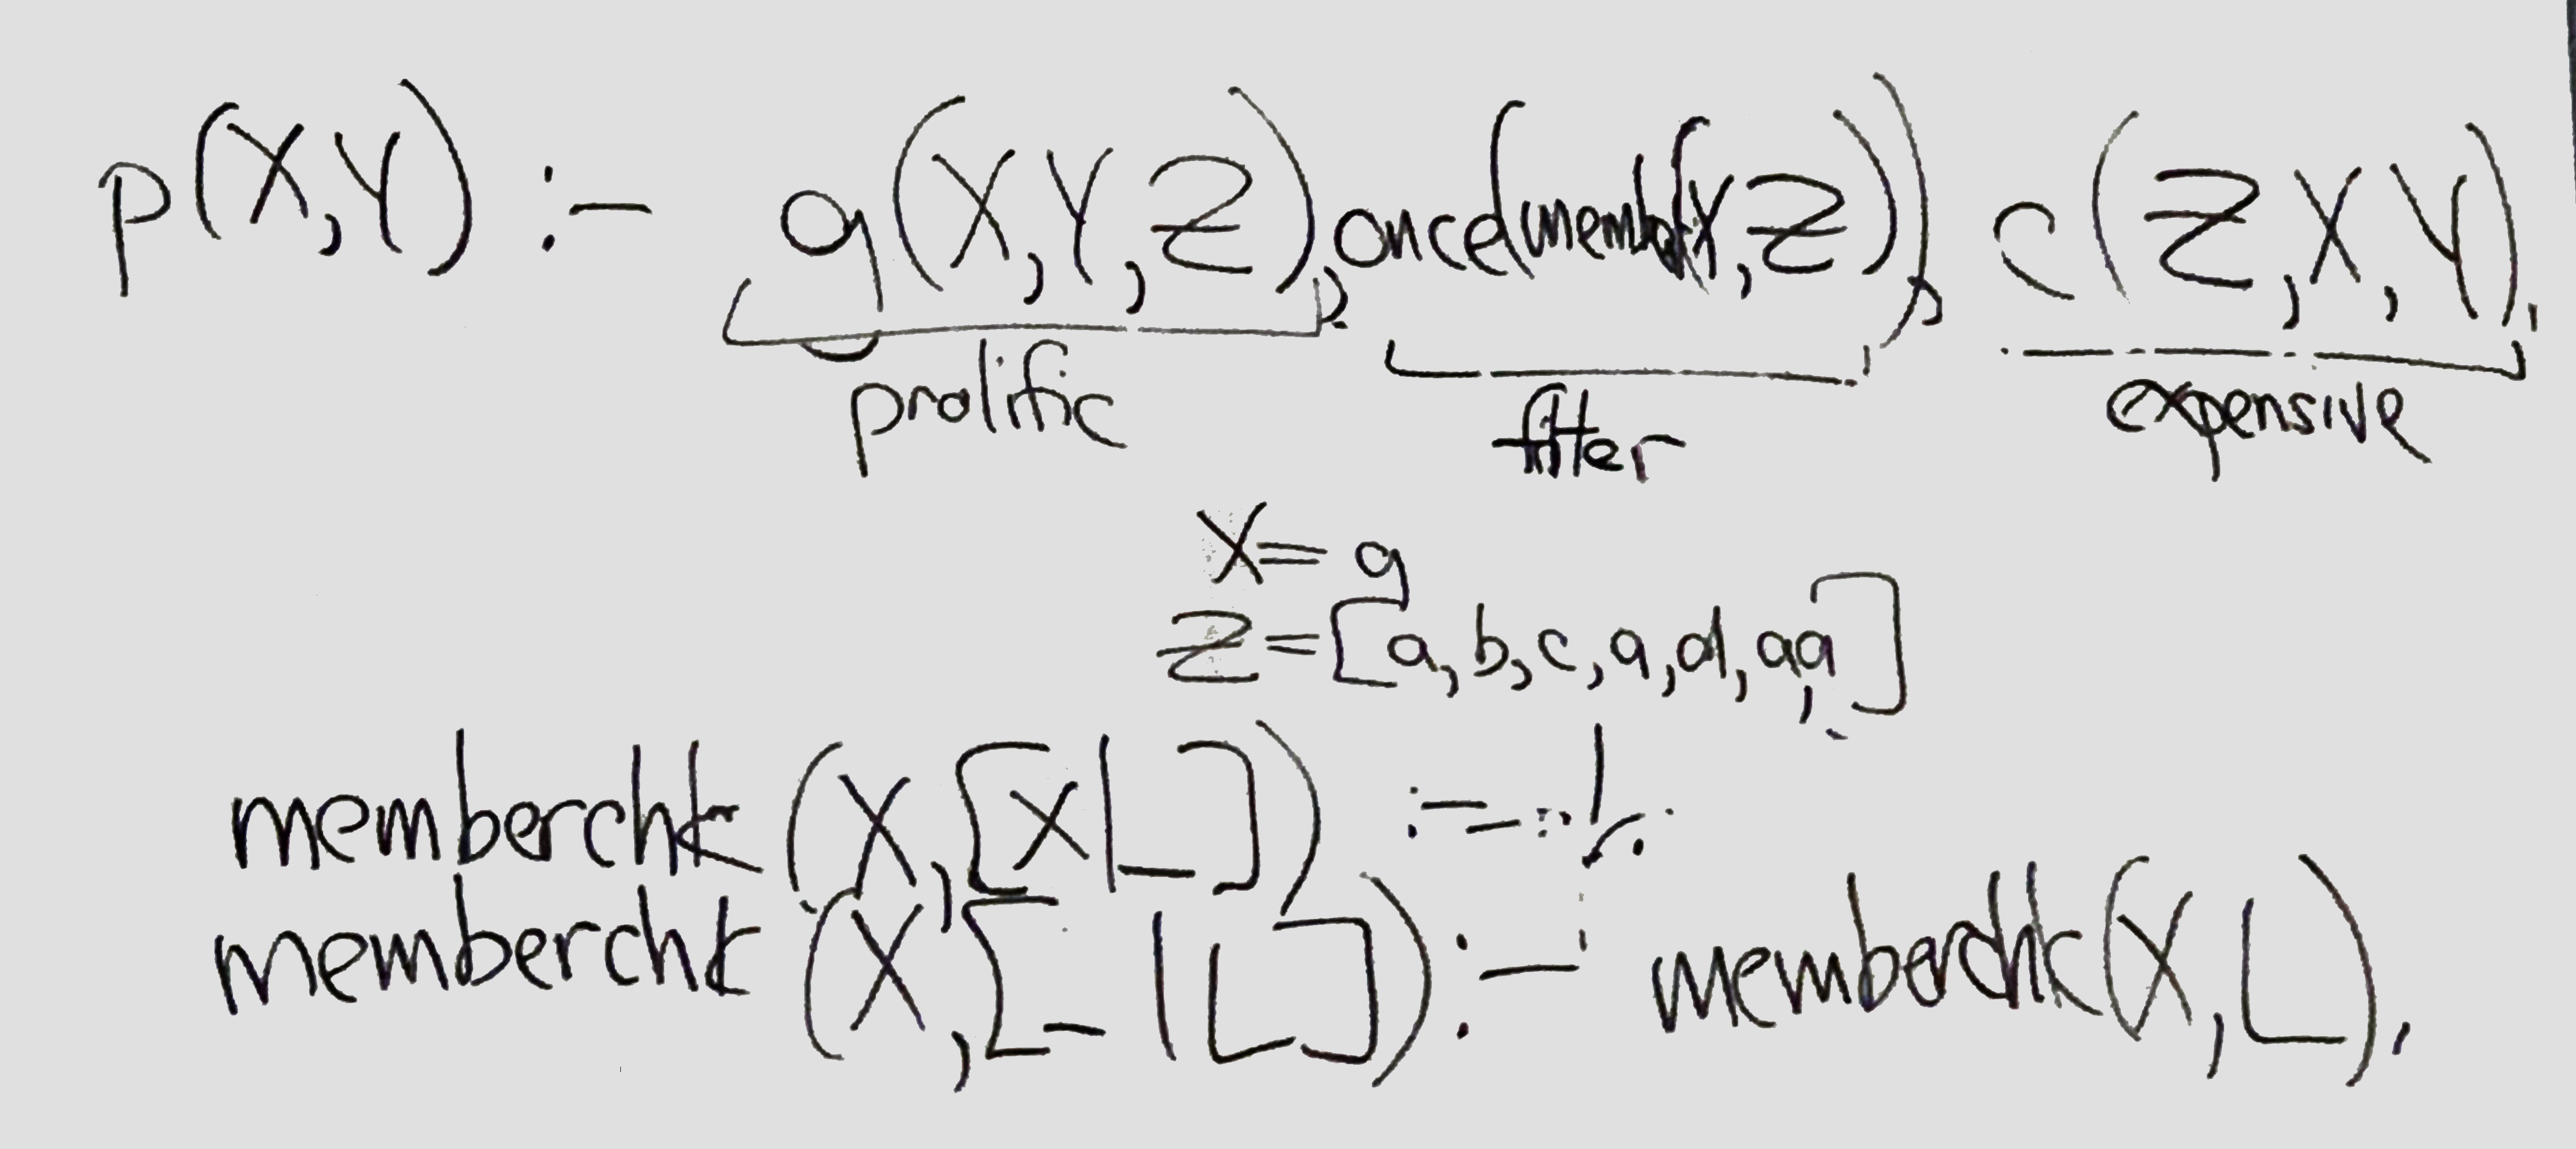 p(X,Y) :- q(X,Y,Z), once(member(X,Z)), c(Z,X,Y).
prolific filter expensive
X= a
Z=[a,b,c,a,d,a,a]
memberchk(X,[X|_]) :- !.
memberchk(X,[_|L]) :- memberchk(X,L).